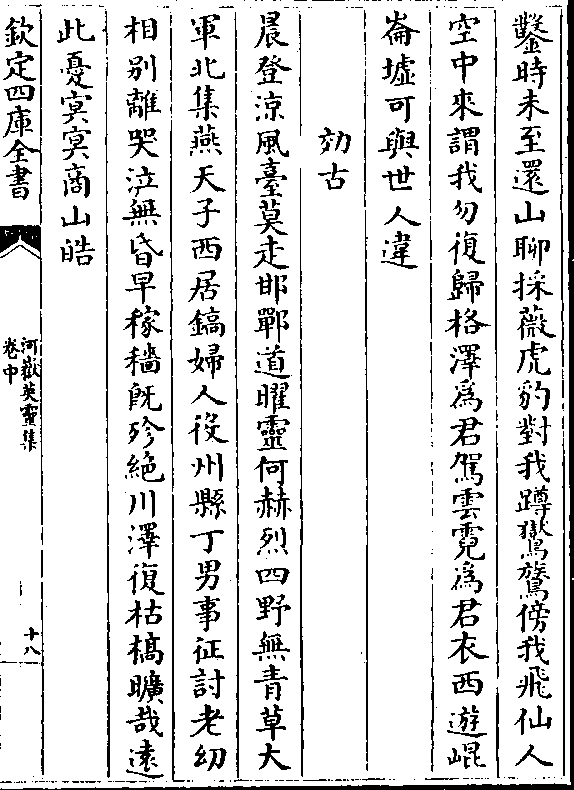 鑿時未至還山聊採薇虎豹對我蹲鸞鷟傍我飛仙人
空中來謂我勿復歸格澤為君駕雲霓為君衣西遊崐
崙墟可與世人違
効古
晨登涼風臺莫走邯鄲道曜靈何赫烈四野無青草大
軍北集燕天子西居鎬婦人役州縣丁男事征討老幼
相别離哭泣無昏早稼穡旣殄絶川澤復枯槁曠哉逺
此憂冥冥商山皓
欽定四庫全書
河嶽英靈集
卷中
十八